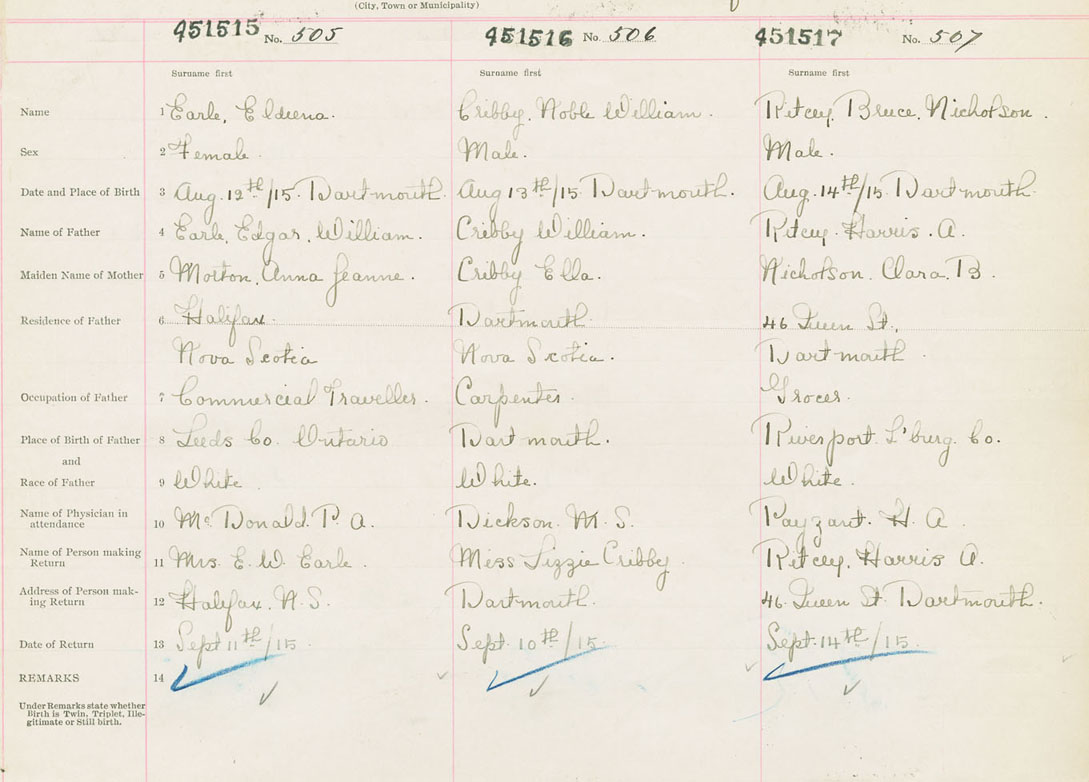 (City, Town or Municipality)
451515 No. 505 451516 No. 506 451517 No. 507
Surname first Surname first Surname first
Name 1 Earle, Eldeena. Cribby, Noble William. Ritcey, Bruce, Nicholson.
Sex 2 Female. Male. Male.
Date and Place of Birth 3 Aug. 12th/15 Dartmouth. Aug 13th/15 Dartmouth. Aug. 14th/15 Dartmouth.
Name of Father 4 Earle, Edgar, William. Cribby William. Ritcey. Harris. A.
Maiden Name of Mother 5 Morton, Anna Jeanne. Cribby Ella. Nicholson. Clara. B.
Residence of Father 6 Halifax. Dartmouth. 46 Queen St.,
Nova Scotia Nova Scotia. Dartmouth.
Occupation of Father 7 Commercial Traveller. Carpenter. Grocer.
Place of Birth of Father 8 Leeds Co. Ontario Dartmouth. Riverport L'burg. Co.
and
Race of Father 9 White. White. White.
Name of Physician in
attendance 10 Mc. Donald. P. A. Dickson. M. S. Payzant. H. A.
Name of Person making
Return 11 Mrs. E. W. Earle. Miss Lizzie Cribby. Ritcey, Harris A.
Address of Person mak-
ing Return 12 Halifax. N. S. Dartmouth. 46. Queen St. Dartmouth.
Date of Return 13 Sept 11th/15 Sept. 10th/15 Sept. 14th/15
REMARKS 14
Under Remarks state whether
Birth is Twin, Triplet, Ille-
gitimate or Still birth.